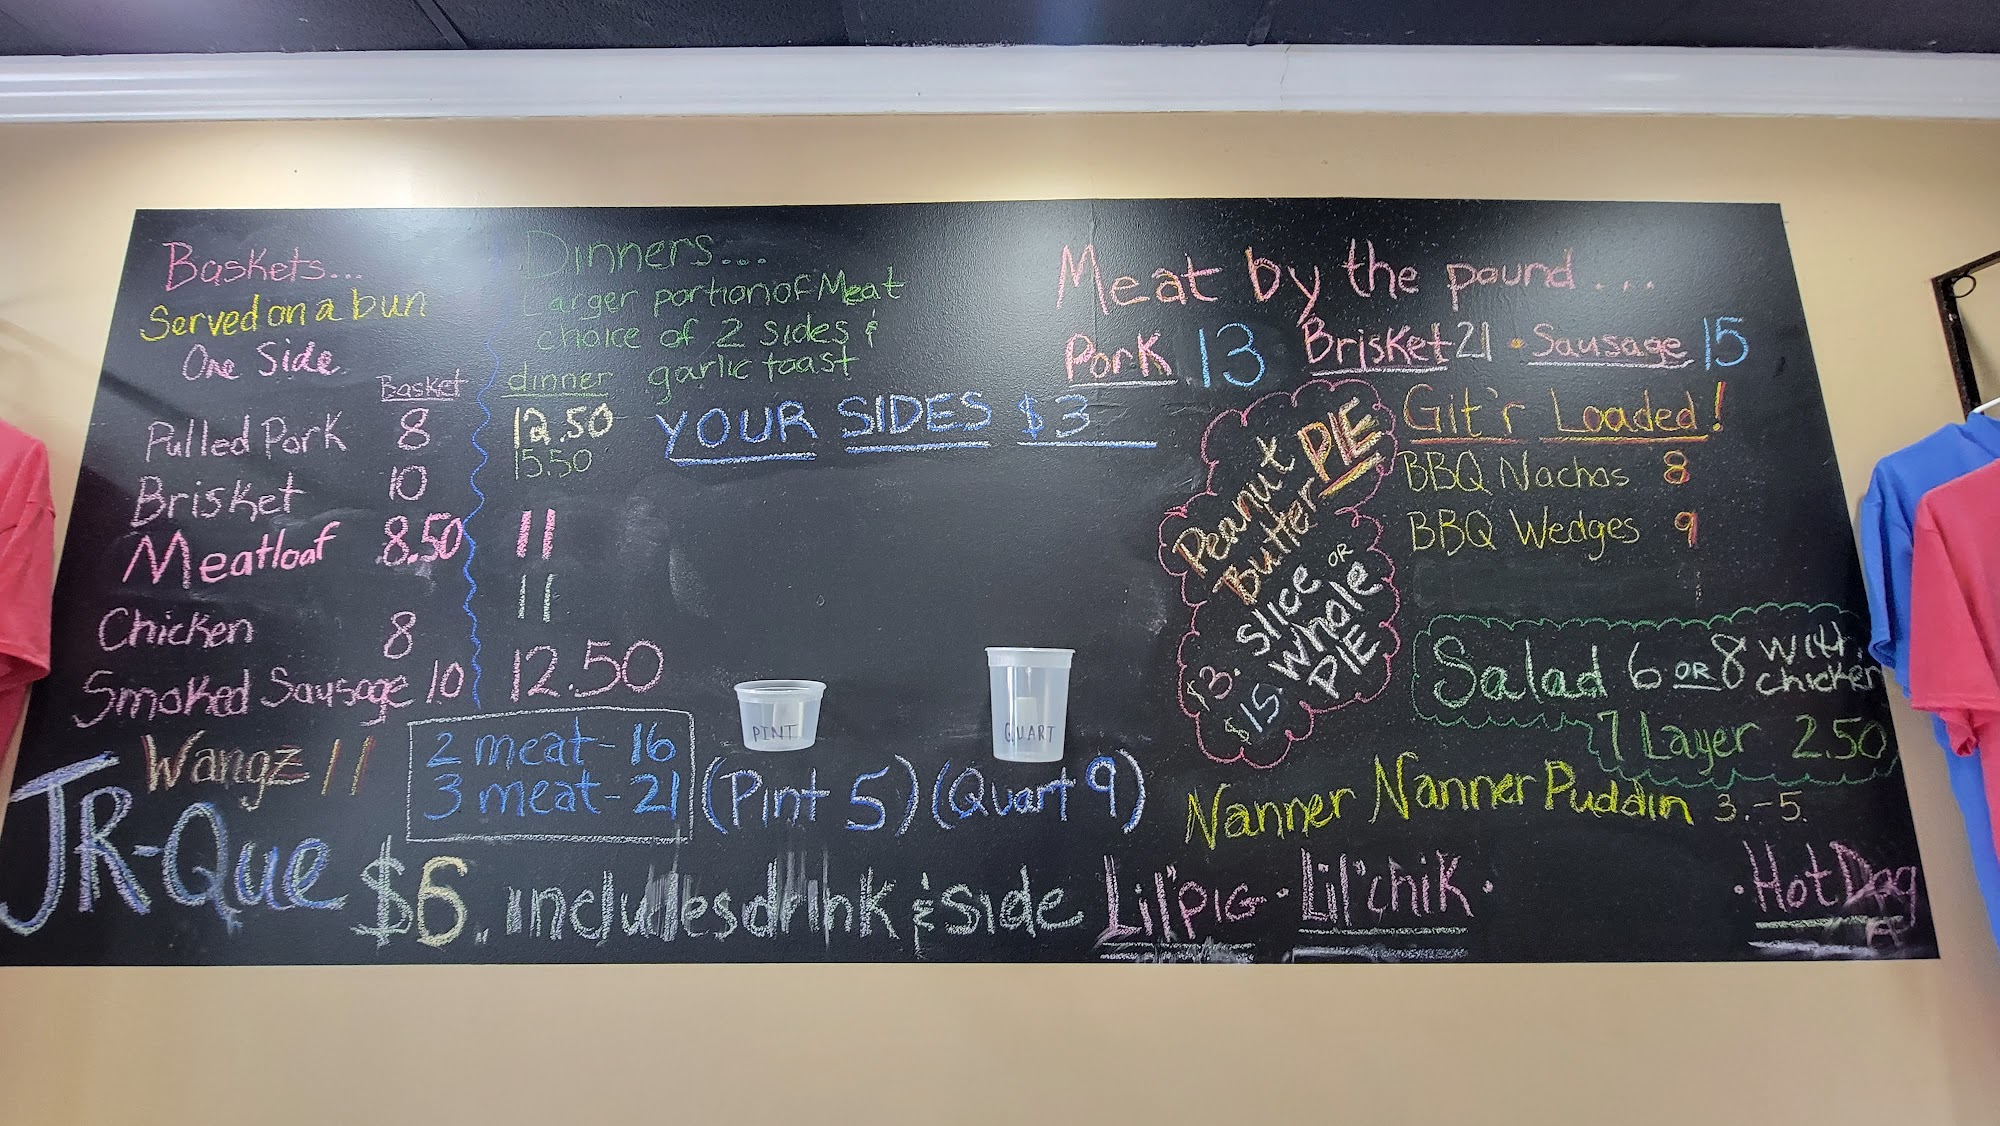 Baskets...
Served on a bun
One Side
Basket
Pulled Pork 8
Brisket 10
Meatloaf 8.50
Chicken 8
Smoked Sausage 10
Wangz 11
Dinners...
Larger portion of Meat
choice of 2 sides &
garlic toast
dinner
12.50
15.50
11
11
12.50
2 meat - 16
3 meat - 21
YOUR SIDES $3
PINT
QUART
(Pint 5) (Quart 9)
Meat by the pound....
Pork 13 Brisket 21 • Sausage 15
Peanut
Butter PIE
$3. Slice OR
$15. whole
PIE
Git'r Loaded!
BBQ Nachos 8
BBQ Wedges 9
Salad 6 OR 8 with
chicken
7 Layer 2.50
Nanner Nanner Puddin 3.-5.
JR-Que $6. includes drink & side Lil'PIG • Lil'chik • • Hot Dog